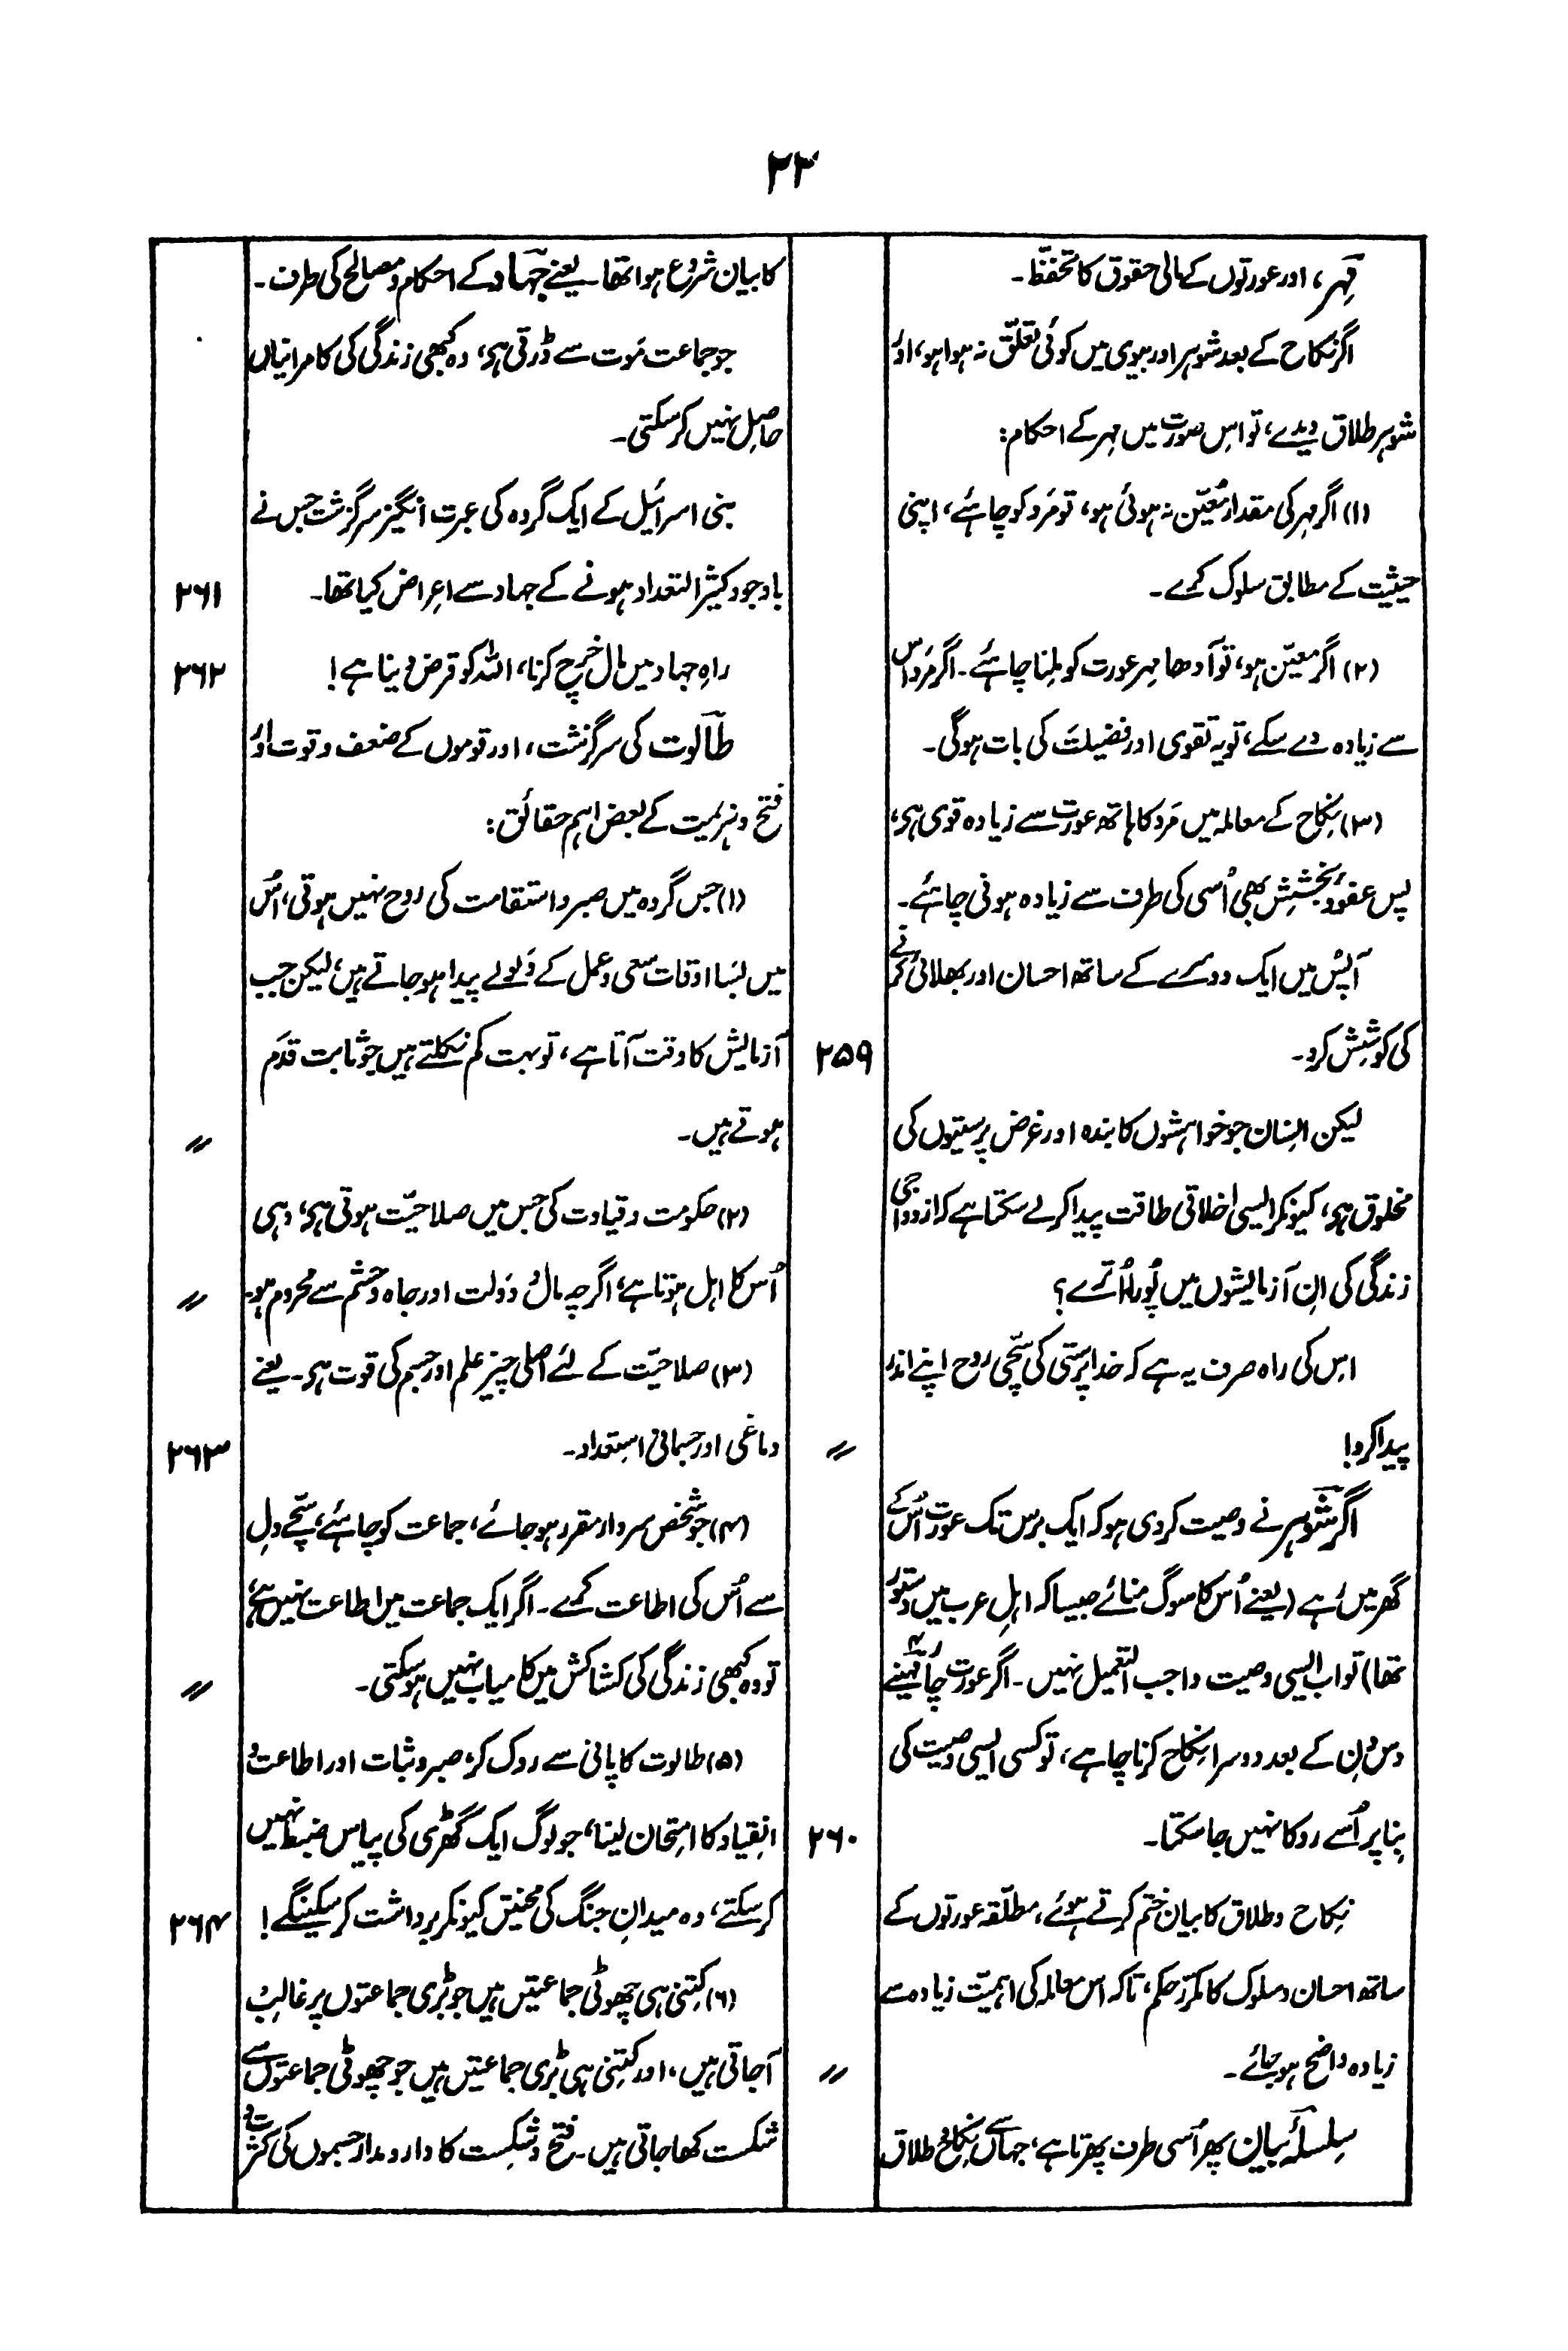 ۲۳
مہر، اور عورتوں کے مالی حقوق کا تحفظ۔
اگر نکاح کے بعد شوہر اور بیوی میں کوئی تعلّق نہ ہوا ہو، اور
شوہر طلاق دیدے، تو اِس صورت میں مہر کے احکام:
(۱) اگر مہر کی مقدار مُعیّن نہ ہوئی ہو، تو مَرد کو چاہئے، اپنی
حیثیت کے مطابق سلوک کرے۔
(۲) اگر معیّن ہو، تو آدھا مہر عورت کو مِلنا چاہئے۔ اگر مَرد اس
سے زیادہ دے سکے، تو یہ تقوی اور فضیلت کی بات ہوگی۔
(۳) نِکاح کے معاملہ میں مَرد کا ہاتھ عورت سے زیادہ قوی ہی،
پس عفو و بخشِش بھی اُسی کی طرف سے زیادہ ہونی چاہئے۔
آپس میں ایک دوسرے کے ساتھ احسان اور بھلائی کرنے
کی کوشِش کرو۔ ۲۵۹
لیکن اِنسان جو خواہشوں کا بندہ اور غرض پرستیوں کی
مخلوق ہی، کیونکر ایسی اخلاقی طاقت پیدا کر لے سکتا ہے کہ ازدواجی
زندگی کی اِن آزمایشوں میں پُورا اُترے؟
اِس کی راہ صرف یہ ہے کہ خدا پرستی کی سچّی روح اپنے اندر
پیدا کرو! 〃
اگر شوہر نے وصیت کردی ہو کہ ایک برس تک عورت اُس کے
گھر میں رہے (یعنے اُس کا سوگ منائے جیسا کہ اہلِ عرب میں دستور
تھا) تو اب ایسی وصیت واجب التعمیل نہیں۔ اگر عورت چار مہینے
دس دِن کے بعد دوسرا نِکاح کرنا چاہے، تو کسی ایسی وصیت کی
بِنا پر اُسے روکا نہیں جا سکتا۔ ۲۶۰
نِکاح و طلاق کا بیان ختم کرتے ہوئے، مطلّقہ عورتوں کے
ساتھ احسان و سلوک کا مکرّر حکم، تاکہ اس معاملہ کی اہمیّت زیادہ سے
زیادہ واضح ہو جائے۔ 〃
سِلسلۂ بیان پھر اُسی طرف پھرتا ہے، جہاں سے نکاح و طلاق
کا بیان شروع ہوا تھا۔ یعنے جہاد کے احکام و مصالح کی طرف۔
جو جماعت مَوت سے ڈرتی ہی، وہ کبھی زندگی کی کامرانیاں
حاصل نہیں کر سکتی۔
بنی اسرائیل کے ایک گروہ کی عبرت انگیز سرگزشت جس نے
باوجود کثیر التعداد ہونے کے جہاد سے اِعراض کیا تھا۔ ۲۶۱
راہِ جہاد میں مال خرچ کرنا، اللہ کو قرض دینا ہے! ۲۶۲
طالوت کی سرگزشت، اور قوموں کے ضعف و قوت اور
فتح و ہزیمیت کے بعض اہم حقائق:
(۱) جس گروہ میں صبر و استقامت کی روح نہیں ہوتی، اُس
میں بَسا اوقات سعی و عمل کے وَلولے پیدا ہو جاتے ہیں، لیکن جب
آزمایش کا وقت آتا ہے، تو بہت کم نکلتے ہیں جو ثابت قدَم
ہوتے ہیں۔ 〃
(۲) حکومت و قیادت کی جس میں صلاحیّت ہوتی ہی، وہی
اُس کا اہل ہوتا ہے، اگرچہ مال و دَولت اور جاہ و حشم سے محروم ہو۔ 〃
(۳) صلاحیّت کے لئے اصلی چیز علم اور جسم کی قوت ہی۔ یعنے
دماغی اور جسمانی استعداد۔ ۲۶۳
(۴) جو شخص سردار مقرر ہو جائے، جماعت کو چاہئے، سچّے دِل
سے اُس کی اطاعت کرے۔ اگر ایک جماعت میں اطاعت نہیں ہی،
تو وہ کبھی زندگی کی کشاکش میں کامیاب نہیں ہو سکتی۔ 〃
(۵) طالوت کا پانی سے روک کر، صبر و ثبات اور اطاعت و
انِقیاد کا امتحان لینا، جو لوگ ایک گھڑی کی پیاس ضبط نہیں
کر سکتے، وہ میدانِ جنگ کی محنتیں کیونکر برداشت کر سکینگے! ۲۶۴
(۶) کِتنی ہی چھوٹی جماعتیں ہیں جو بڑی جماعتوں پر غالب
آجاتی ہیں، اور کِتنی ہی بڑی جماعتیں ہیں جو چھوٹی جماعتوں سے
شکست کھا جاتی ہیں۔ فتح و شِکست کا دارومدار جسموں کی کثرت و